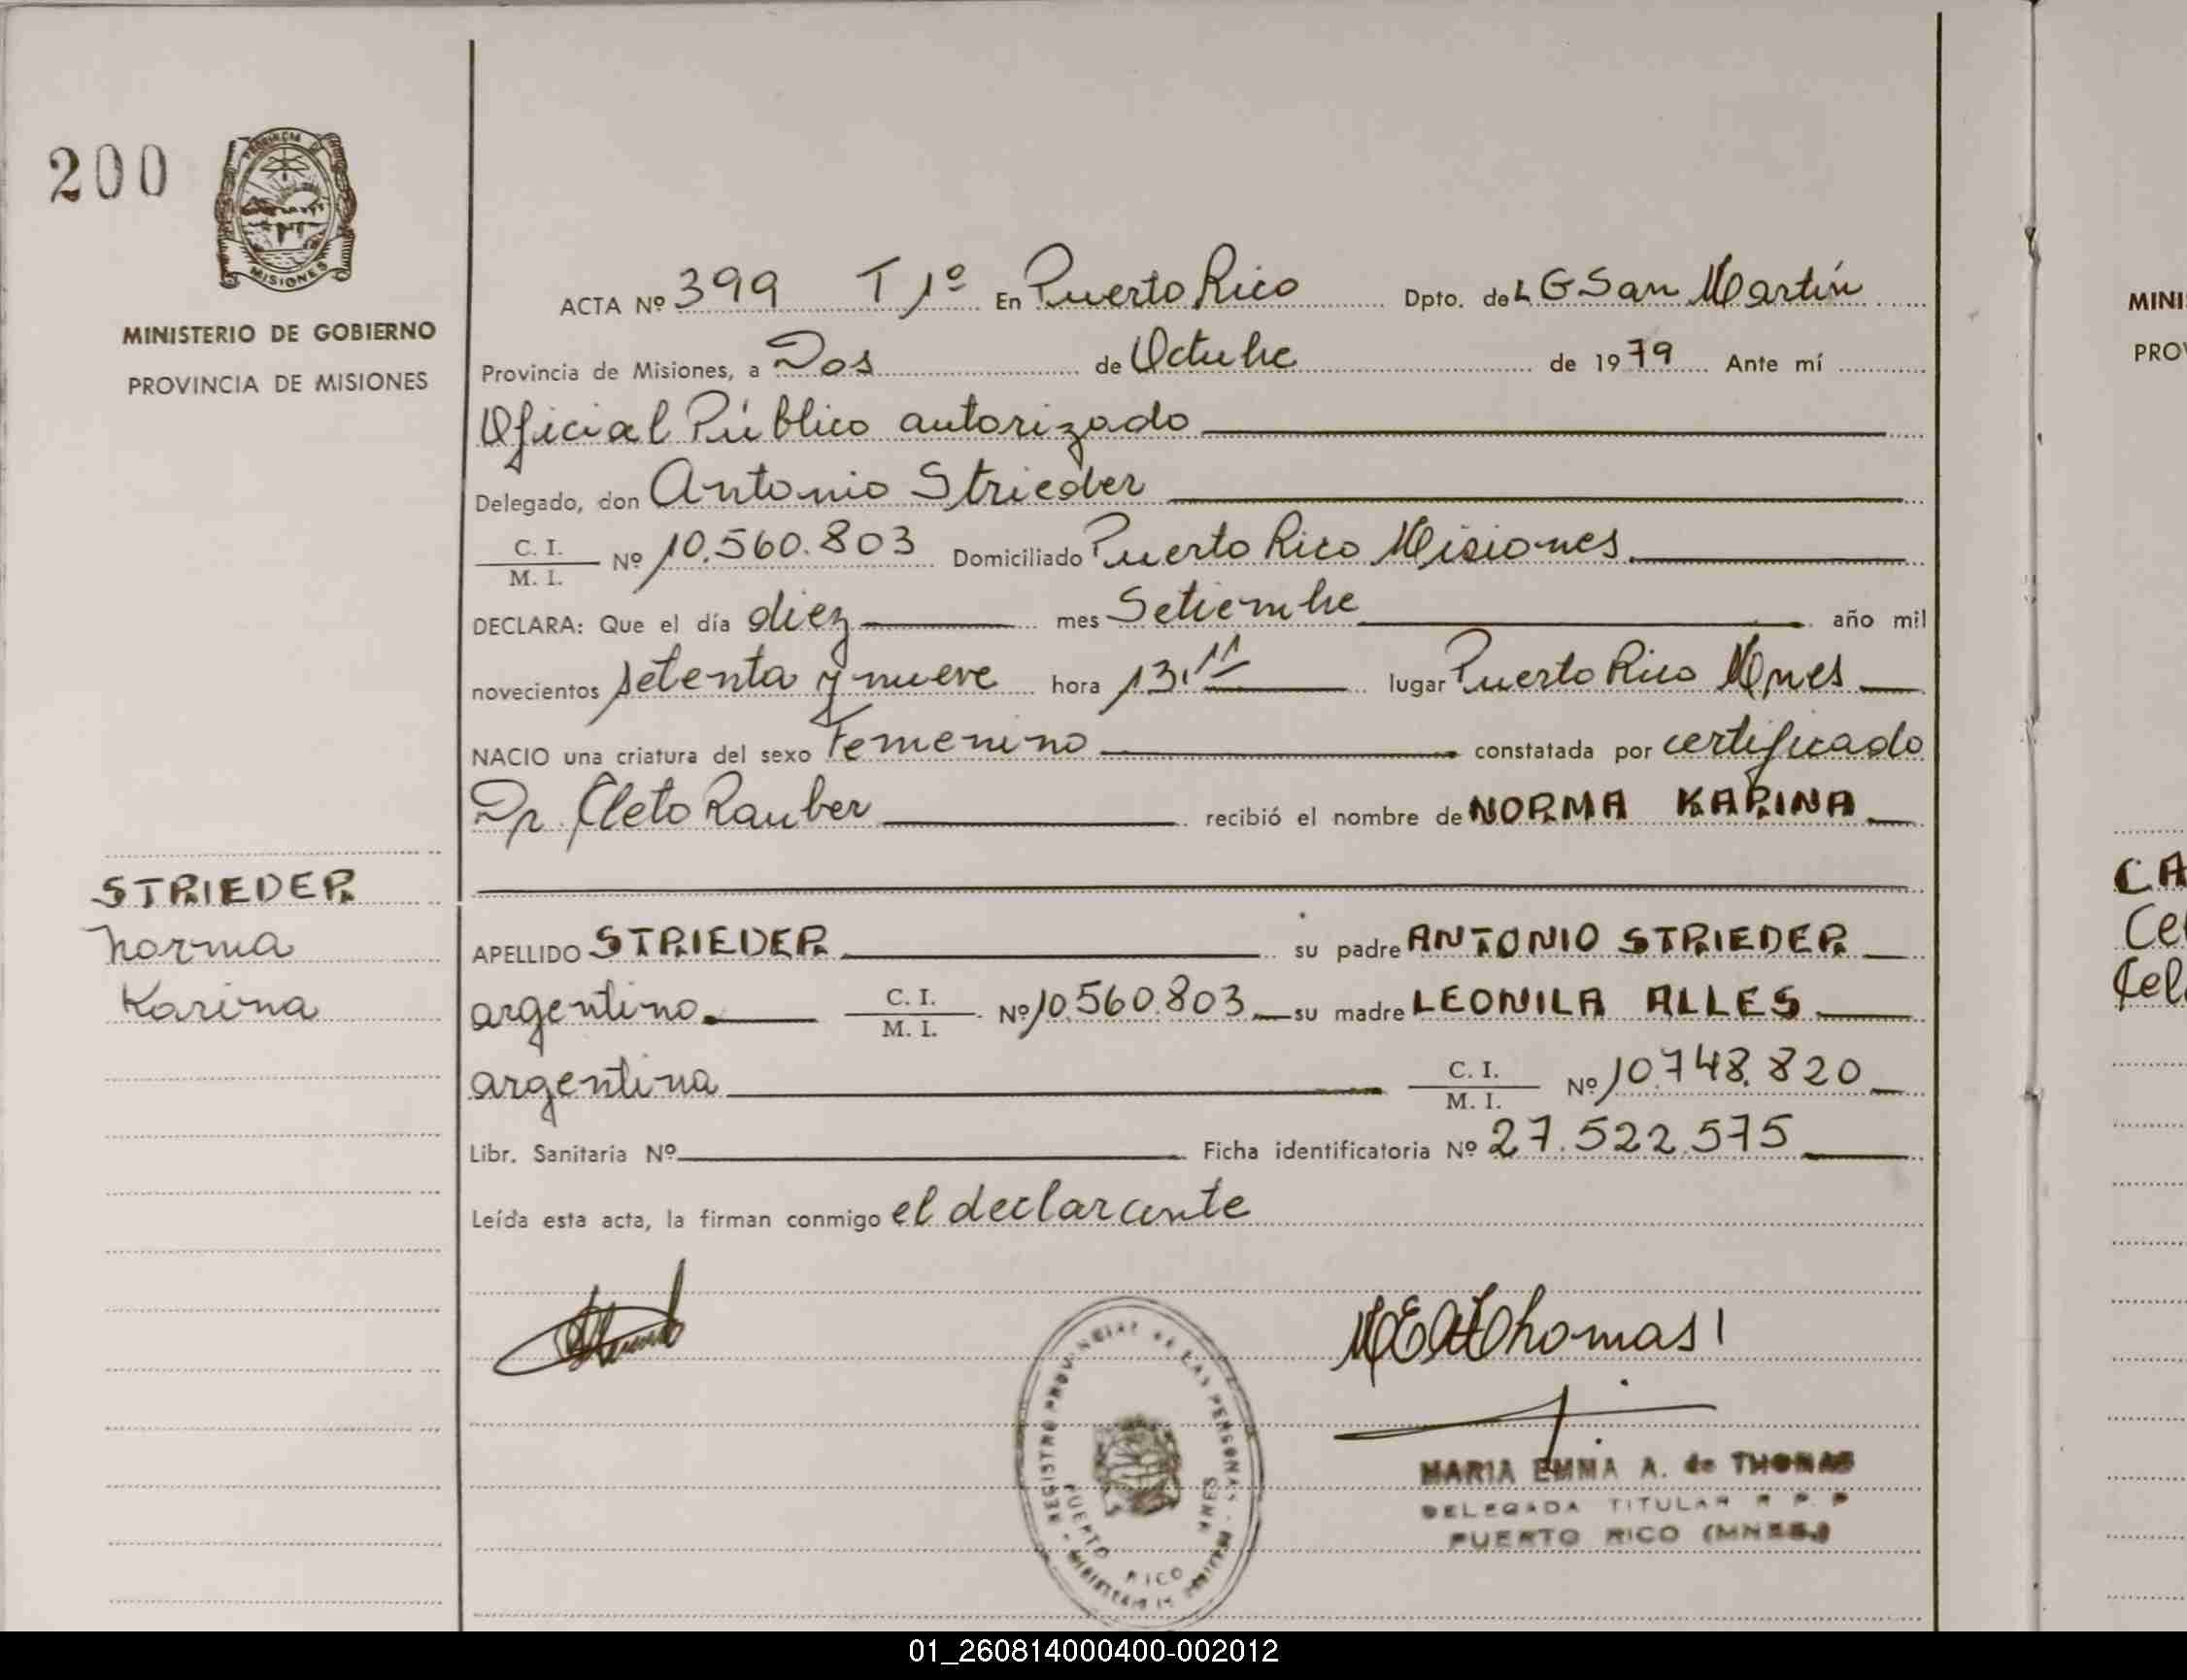 200
PROVINCIA DE
MISIONES
MINISTERIO DE GOBIERNO
PROVINCIA DE MISIONES
STRIEDER
Norma
Karina
ACTA Nº 399 T 1º En Puerto Rico Dpto. de L G San Martín
Provincia de Misiones, a Dos de Octubre de 1979 Ante mí
Oficial Público autorizado
Delegado, don Antonio Strieder
C. I.
M. I. Nº 10.560.803 Domiciliado Puerto Rico Misiones
DECLARA: Que el día diez mes Setiembre año mil
novecientos setenta y nueve hora 13.11 lugar Puerto Rico Mnes
NACIO una criatura del sexo Femenino constatada por certificado
Dr. Cleto Rauber recibió el nombre de NORMA KARINA
APELLIDO STRIEDER su padre ANTONIO STRIEDER
argentino C. I.
M. I. Nº 10.560.803 su madre LEONILA ALLES
argentina C. I.
M. I. Nº 10.748.820
Libr. Sanitaria Nº Ficha identificatoria Nº 27.522.575
Leída esta acta, la firman conmigo el declarante
REGISTRO PROVINCIAL DE LAS PERSONAS
PUERTO RICO MISIONES
MARIA EMMA A. de THOMAS
DELEGADA TITULAR R P P
PUERTO RICO (MNES.)
MINI
PRO
CA
Ce
Cel
01_260814000400-002012